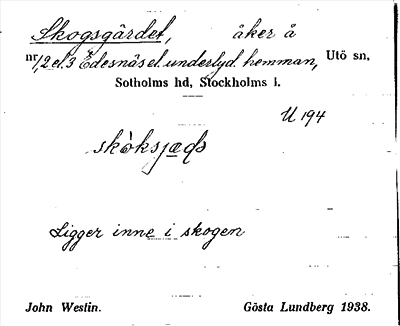 Skogsgärdet, åker å
nr 1, 2 el. 3 Edesnäs el. underlyd. hemman, Utö sn,
Sotholms hd, Stockholms l.
U 194
Ligger inne i skogen
John Westin. Gösta Lundberg 1938.